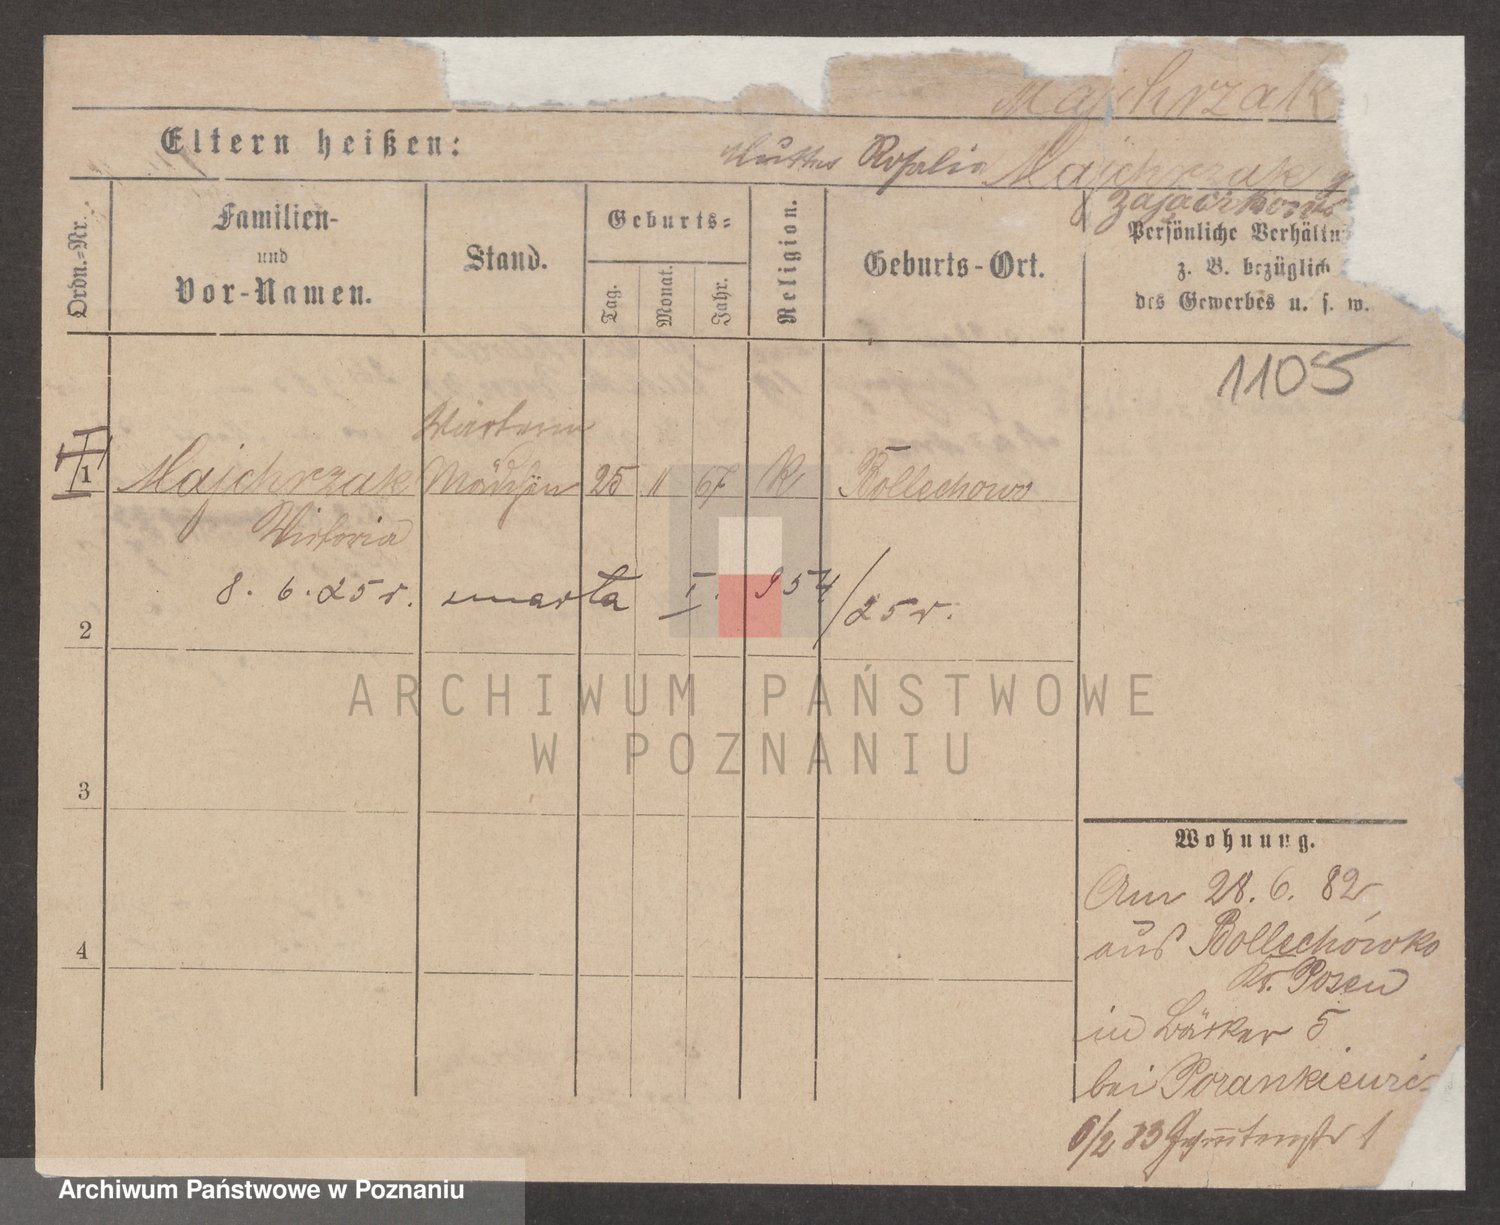 Majchrzak
Eltern heißen: Mutter Rosalia Majchrzak g
Ordn.-Nr.
Familien-
und
Vor-Namen.
Stand.
Geburts-
Tag.
Monat.
Jahr.
Religion.
Geburts-Ort.
Persönliche Verhältn
z. B. bezüglich
des Gewerbes u. s. w.
1105
II
Wärterin
1 Majchrzak Mädchen 25 11 67 K. Bollechowo
Victoria
8. 6. 25 r. umarła I. 954/25 r.
2
ARCHIWUM PAŃSTWOWE
W POZNANIU
3
Wohnung.
Am 28. 6. 82
aus Bollechówko
Kr. Posen
in Bäcker 5
bei Porankiewicz
4
6/2 83
Archiwum Państwowe w Poznaniu